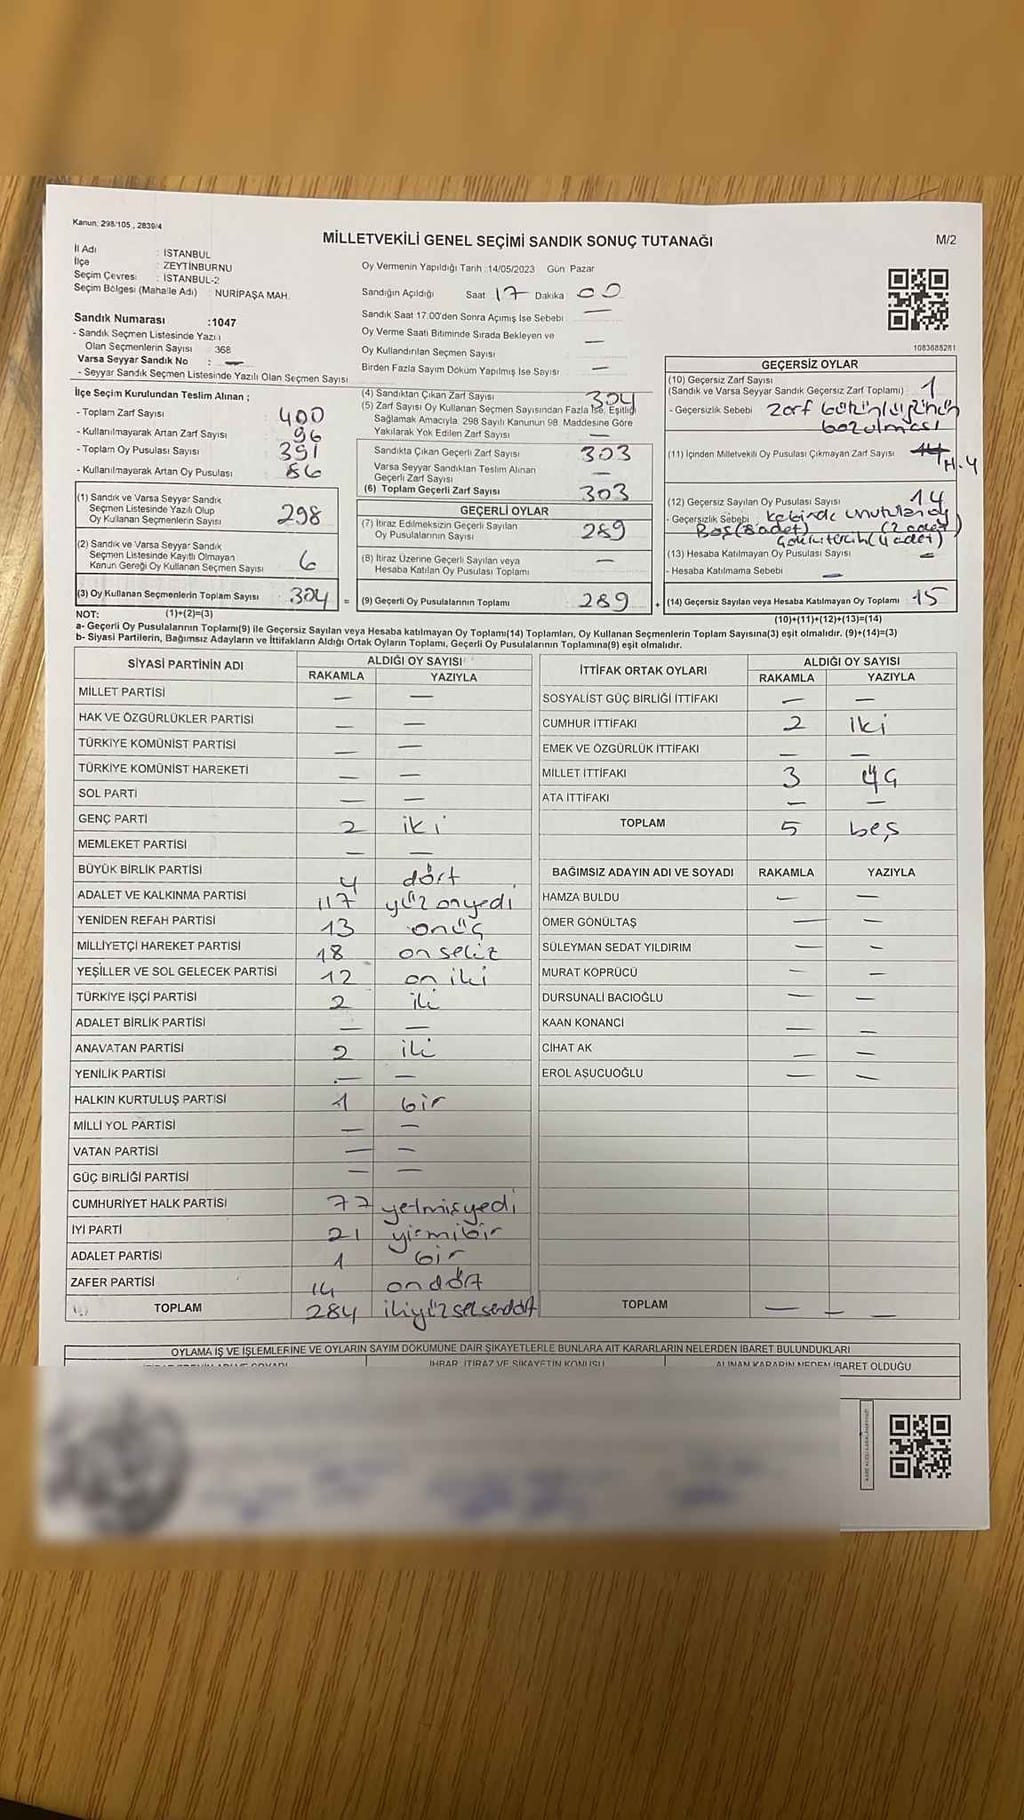 Kanun: 298/105 , 2839/4
MİLLETVEKİLİ GENEL SEÇİMİ SANDIK SONUÇ TUTANAĞI
M/2
İl Adı : İSTANBUL
İlçe : ZEYTİNBURNU
Seçim Çevresi : İSTANBUL-2
Seçim Bölgesi (Mahalle Adı) : NURİPAŞA MAH.
Sandık Numarası :1047
- Sandık Seçmen Listesinde Yazılı
Olan Seçmenlerin Sayısı : 368
Varsa Seyyar Sandık No : —
- Seyyar Sandık Seçmen Listesinde Yazılı Olan Seçmen Sayısı
Oy Vermenin Yapıldığı Tarih :14/05/2023 Gün Pazar
Sandığın Açıldığı Saat 17 Dakika 00
Sandık Saat 17.00'den Sonra Açılmış İse Sebebi —
Oy Verme Saati Bitiminde Sırada Bekleyen ve
Oy Kullandırılan Seçmen Sayısı —
Birden Fazla Sayım Döküm Yapılmış İse Sayısı —
1083688281
İlçe Seçim Kurulundan Teslim Alınan ;
- Toplam Zarf Sayısı 400
- Kullanılmayarak Artan Zarf Sayısı 96
- Toplam Oy Pusulası Sayısı 391
- Kullanılmayarak Artan Oy Pusulası 86
(1) Sandık ve Varsa Seyyar Sandık
Seçmen Listesinde Yazılı Olup
Oy Kullanan Seçmenlerin Sayısı 298
(2) Sandık ve Varsa Seyyar Sandık
Seçmen Listesinde Kayıtlı Olmayan
Kanun Gereği Oy Kullanan Seçmen Sayısı 6
(3) Oy Kullanan Seçmenlerin Toplam Sayısı 304 =
(1)+(2)=(3)
(4) Sandıktan Çıkan Zarf Sayısı 304
(5) Zarf Sayısı Oy Kullanan Seçmen Sayısından Fazla İse, Eşitliği
Sağlamak Amacıyla, 298 Sayılı Kanunun 98. Maddesine Göre
Yakılarak Yok Edilen Zarf Sayısı —
Sandıkta Çıkan Geçerli Zarf Sayısı 303
Varsa Seyyar Sandıktan Teslim Alınan
Geçerli Zarf Sayısı —
(6) Toplam Geçerli Zarf Sayısı 303
GEÇERLİ OYLAR
(7) İtiraz Edilmeksizin Geçerli Sayılan
Oy Pusulasının Sayısı 289
(8) İtiraz Üzerine Geçerli Sayılan veya
Hesaba Katılan Oy Pusulası Toplamı —
(9) Geçerli Oy Pusulalarının Toplamı 289 +
GEÇERSİZ OYLAR
(10) Geçersiz Zarf Sayısı
(Sandık ve Varsa Seyyar Sandık Geçersiz Zarf Toplamı) 1
- Geçersizlik Sebebi Zarf bütünlüğünün
bozulması
(11) İçinden Milletvekili Oy Pusulası Çıkmayan Zarf Sayısı
(12) Geçersiz Sayılan Oy Pusulası Sayısı 14
- Geçersizlik Sebebi Kabinde unutulan oy
Boş(8 adet) (2 adet)
(4 adet)
(13) Hesaba Katılmayan Oy Pusulası Sayısı —
- Hesaba Katılmama Sebebi —
(14) Geçersiz Sayılan veya Hesaba Katılmayan Oy Toplamı 15
(10)+(11)+(12)+(13)=(14)
NOT:
a- Geçerli Oy Pusulalarının Toplamı(9) ile Geçersiz Sayılan veya Hesaba katılmayan Oy Toplamı(14) Toplamları, Oy Kullanan Seçmenlerin Toplam Sayısına(3) eşit olmalıdır. (9)+(14)=(3)
b- Siyasi Partilerin, Bağımsız Adayların ve İttifakların Aldığı Ortak Oyların Toplamı, Geçerli Oy Pusulalarının Toplamına(9) eşit olmalıdır.
SİYASİ PARTİNİN ADI ALDIĞI OY SAYISI
RAKAMLA YAZIYLA
MİLLET PARTİSİ — —
HAK VE ÖZGÜRLÜKLER PARTİSİ — —
TÜRKİYE KOMÜNİST PARTİSİ — —
TÜRKİYE KOMÜNİST HAREKETİ — —
SOL PARTİ — —
GENÇ PARTİ 2 iki
MEMLEKET PARTİSİ — —
BÜYÜK BİRLİK PARTİSİ 4 dört
ADALET VE KALKINMA PARTİSİ 117 yüz onyedi
YENİDEN REFAH PARTİSİ 13 onüç
MİLLİYETÇİ HAREKET PARTİSİ 18 on sekiz
YEŞİLLER VE SOL GELECEK PARTİSİ 12 on iki
TÜRKİYE İŞÇİ PARTİSİ 2 iki
ADALET BİRLİK PARTİSİ — —
ANAVATAN PARTİSİ 2 iki
YENİLİK PARTİSİ — —
HALKIN KURTULUŞ PARTİSİ 1 bir
MİLLİ YOL PARTİSİ — —
VATAN PARTİSİ — —
GÜÇ BİRLİĞİ PARTİSİ — —
CUMHURİYET HALK PARTİSİ 77 yetmişyedi
İYİ PARTİ 21 yirmibir
ADALET PARTİSİ 1 bir
ZAFER PARTİSİ 14 ondört
TOPLAM 284 ikiyüzseksendört
İTTİFAK ORTAK OYLARI ALDIĞI OY SAYISI
RAKAMLA YAZIYLA
SOSYALİST GÜÇ BİRLİĞİ İTTİFAKI — —
CUMHUR İTTİFAKI 2 iki
EMEK VE ÖZGÜRLÜK İTTİFAKI — —
MİLLET İTTİFAKI 3 üç
ATA İTTİFAKI — —
TOPLAM 5 beş
BAĞIMSIZ ADAYIN ADI VE SOYADI RAKAMLA YAZIYLA
HAMZA BULDU — —
ÖMER GÖNÜLTAŞ — —
SÜLEYMAN SEDAT YILDIRIM — —
MURAT KÖPRÜCÜ — —
DURSUNALİ BACIOĞLU — —
KAAN KONANCI — —
CİHAT AK — —
EROL AŞUCUOĞLU — —
TOPLAM — — —
OYLAMA İŞ VE İŞLEMLERİNE VE OYLARIN SAYIM DÖKÜMÜNE DAİR ŞİKAYETLERLE BUNLARA AİT KARARLARIN NELERDEN İBARET BULUNDUKLARI
İHBAR, İTİRAZ VE ŞİKAYETİN KONUSU ALINAN KARARIN NEDEN İBARET OLDUĞU